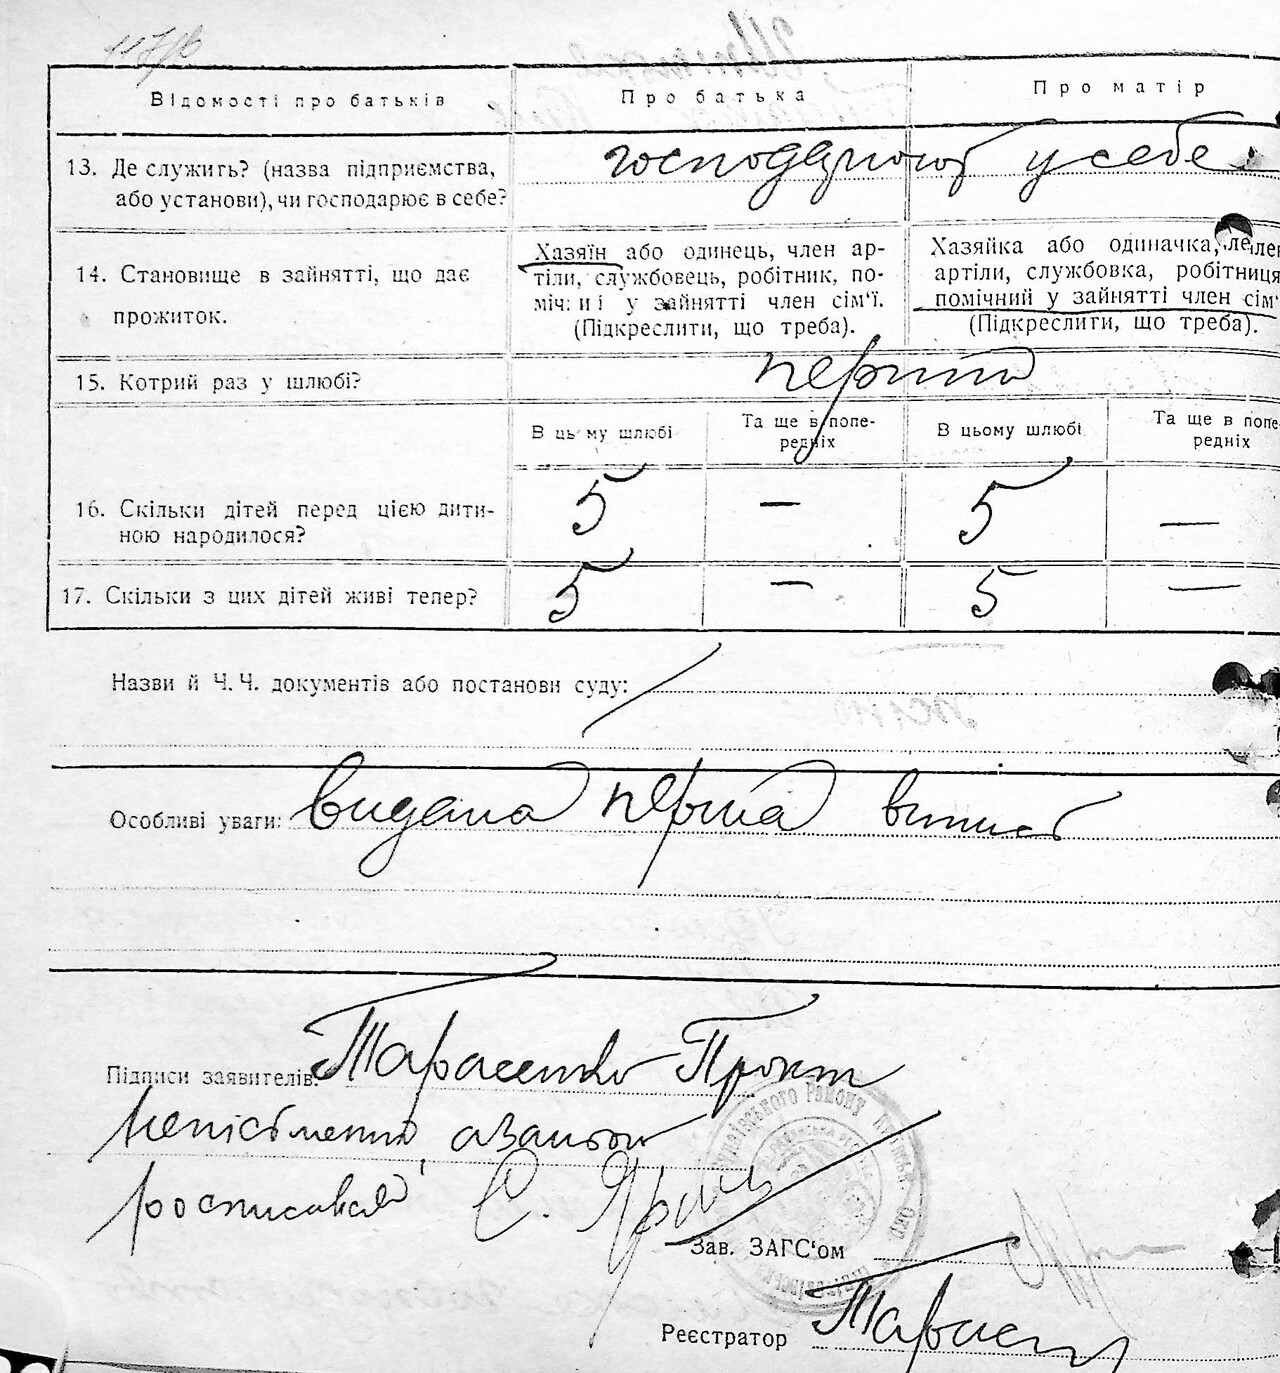 Відомості про батьків
Про батька
Про матір
13. Де служить? (назва підприємства, або установи), чи господарює в себе?
господарює у себе
14. Становище в зайнятті, що дає прожиток.
Хазяїн або одинець, член ар-
тіли, службовець, робітник, по-
міч: и і у зайнятті член сім'ї.
(Підкреслити, що треба).
Хазяйка або одиначка,
артіли, службовка, робітниця
помічний у зайнятті член сім'
(Підкреслити, що треба).
15. Котрий раз у шлюбі?
перший
В ць му шлюбі
Та ще в попе-
редніх
В цьому шлюбі
Та ще в попе-
редніх
16. Скільки дітей перед цією дити-
ною народилося?
5 — 5 —
17. Скільки з цих дітей живі тепер?
5 — 5 —
Назви й Ч. Ч. документів або постанови суду:
Особливі уваги: видана перша випись
Підписи заявителів: Тарасенко Прокіп
неписьменний, а за нього
росписався С.
Зав. ЗАГС'ом
Реєстратор